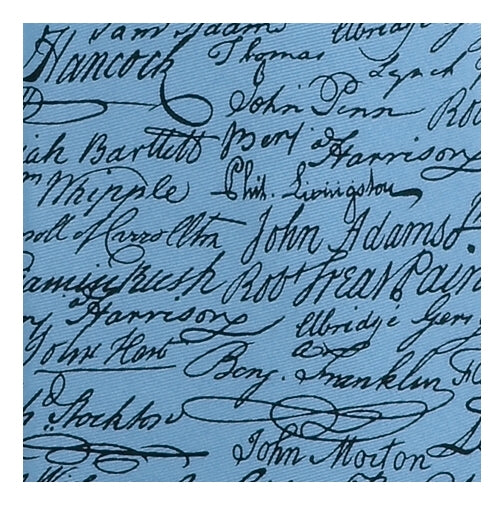 Sam Adams Elbridge
Hancock Thomas Lynch
John Penn Ro
ah Bartlett Benj a Harrison
m Whipple Phil. Livingston
roll of Carrollton John Adams
amin Rush Robt Treat Pain
nj a Harrison Elbridge Gerr
John Hart Benj. Franklin
h d. Stockton
John Morton